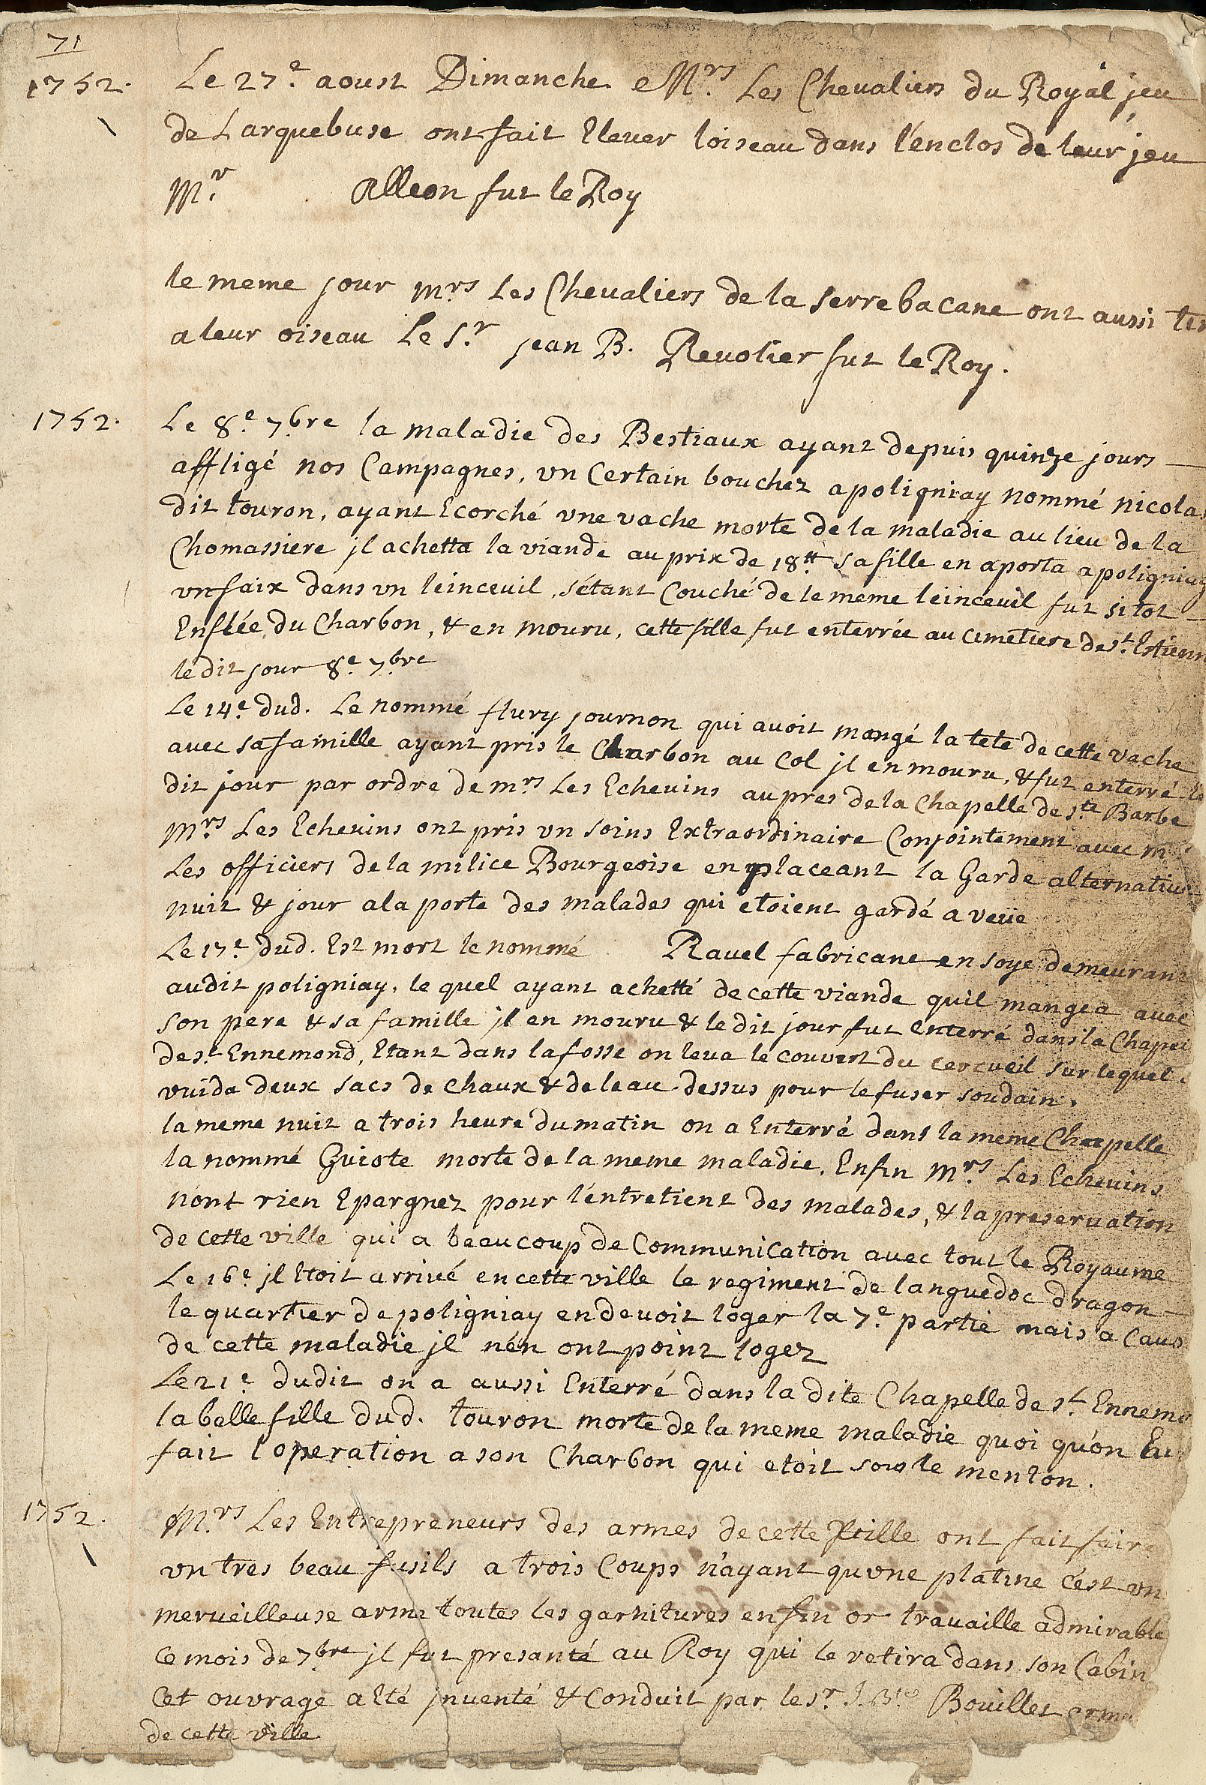 71
1752. Le 27.e aoust Dimanche Mrs. Les Cheualiers du Royal jeu
de Larquebuse ont fait Eleuer loiseau dans l'enclos de leur jeu
Mr. alleon fut le Roy
le meme jour mrs Les Cheualiers de la serrebacane ont aussi
a leur oiseau Le Sr. jean B. Reuolier fut le Roy.
1752. Le 8.e 7bre la maladie des Bestiaux ayant depuis quinze jours
affligé nos Campagnes, vn Certain boucher a poligniay nommé nicolas
dit touron, ayant Ecorché vne vache morte de la maladie au lieu de la
Chomassiere jl achetta la viande au prix de 18tt sa fille en aporta a poligniay
vn faix dans vn leinceuil, s'étant Couché de le meme leinceuil fut si tot
Enflée du Charbon, & en mouru, cette fille fut enterrée au cimetiere de st. Estienne
le dit jour 8e 7bre
Le 14.e dud. Le nommé flury journon qui auoit mangé la tete de cette vache
auec sa famille ayant pris le Charbon au Col jl en mouru, & fut enterré le
dit jour par ordre de mrs Les Echeuins aupres de la Chapelle de ste Barbe
Mrs Les Echeuins ont pris vn soins Extraordinaire Conjointement auec
Les officiers de la milice Bourgeoise en placeant la Garde
nuit & jour a la porte des malades qui etoient gardé a veüe
Le 17.e dud. Est mort le nommé Rauel fabricant en soye demeurant
audit poligniay, le quel ayant achetté de cette viande quil mangea auec
son pere & sa famille jl en mouru & le dit jour fut enterré dans la
de st. Ennemond, Etant dans la fosse on leua le couuert du cercueil sur lequel
vuida deux sacs de chaux & de leau dessus pour le fuser soudain.
la meme nuit a trois heure du matin on a Enterré dans la meme Chapelle
la nommé Guiote morte de la meme maladie. Enfin Mrs. Les Echeuins
n'ont rien Epargnez pour l'entretient des malades, & la preseruation
de cette ville qui a beaucoup de Communication auec tout le Royaume
Le 16e jl Etoit arriué en cette ville le regiment de languedoc dragon
le quartier de poligniay en deuoit loger la 7.e partie mais a
de cette maladie jl n'en ont point logez
Le 21e dudit on a aussi Enterré dans la dite Chapelle de st.
la belle fille dud. touron morte de la meme maladie quoi qu'on
fait l'operation a son Charbon qui etoit sous le menton.
1752. Mrs. Les Entrepreneurs des armes de cette Ville ont fait faire
vn tres beau fusils a trois Coups n'ayant qu'vne platine c'est vn
merueilleuse arme toutes les garnitures en fin or trauaille admirable
Ce mois de 7bre jl fut presanté au Roy qui le retira dans son
Cet ouvrage a Eté jnuenté & Conduit par le Sr. Bouillet
de cette ville